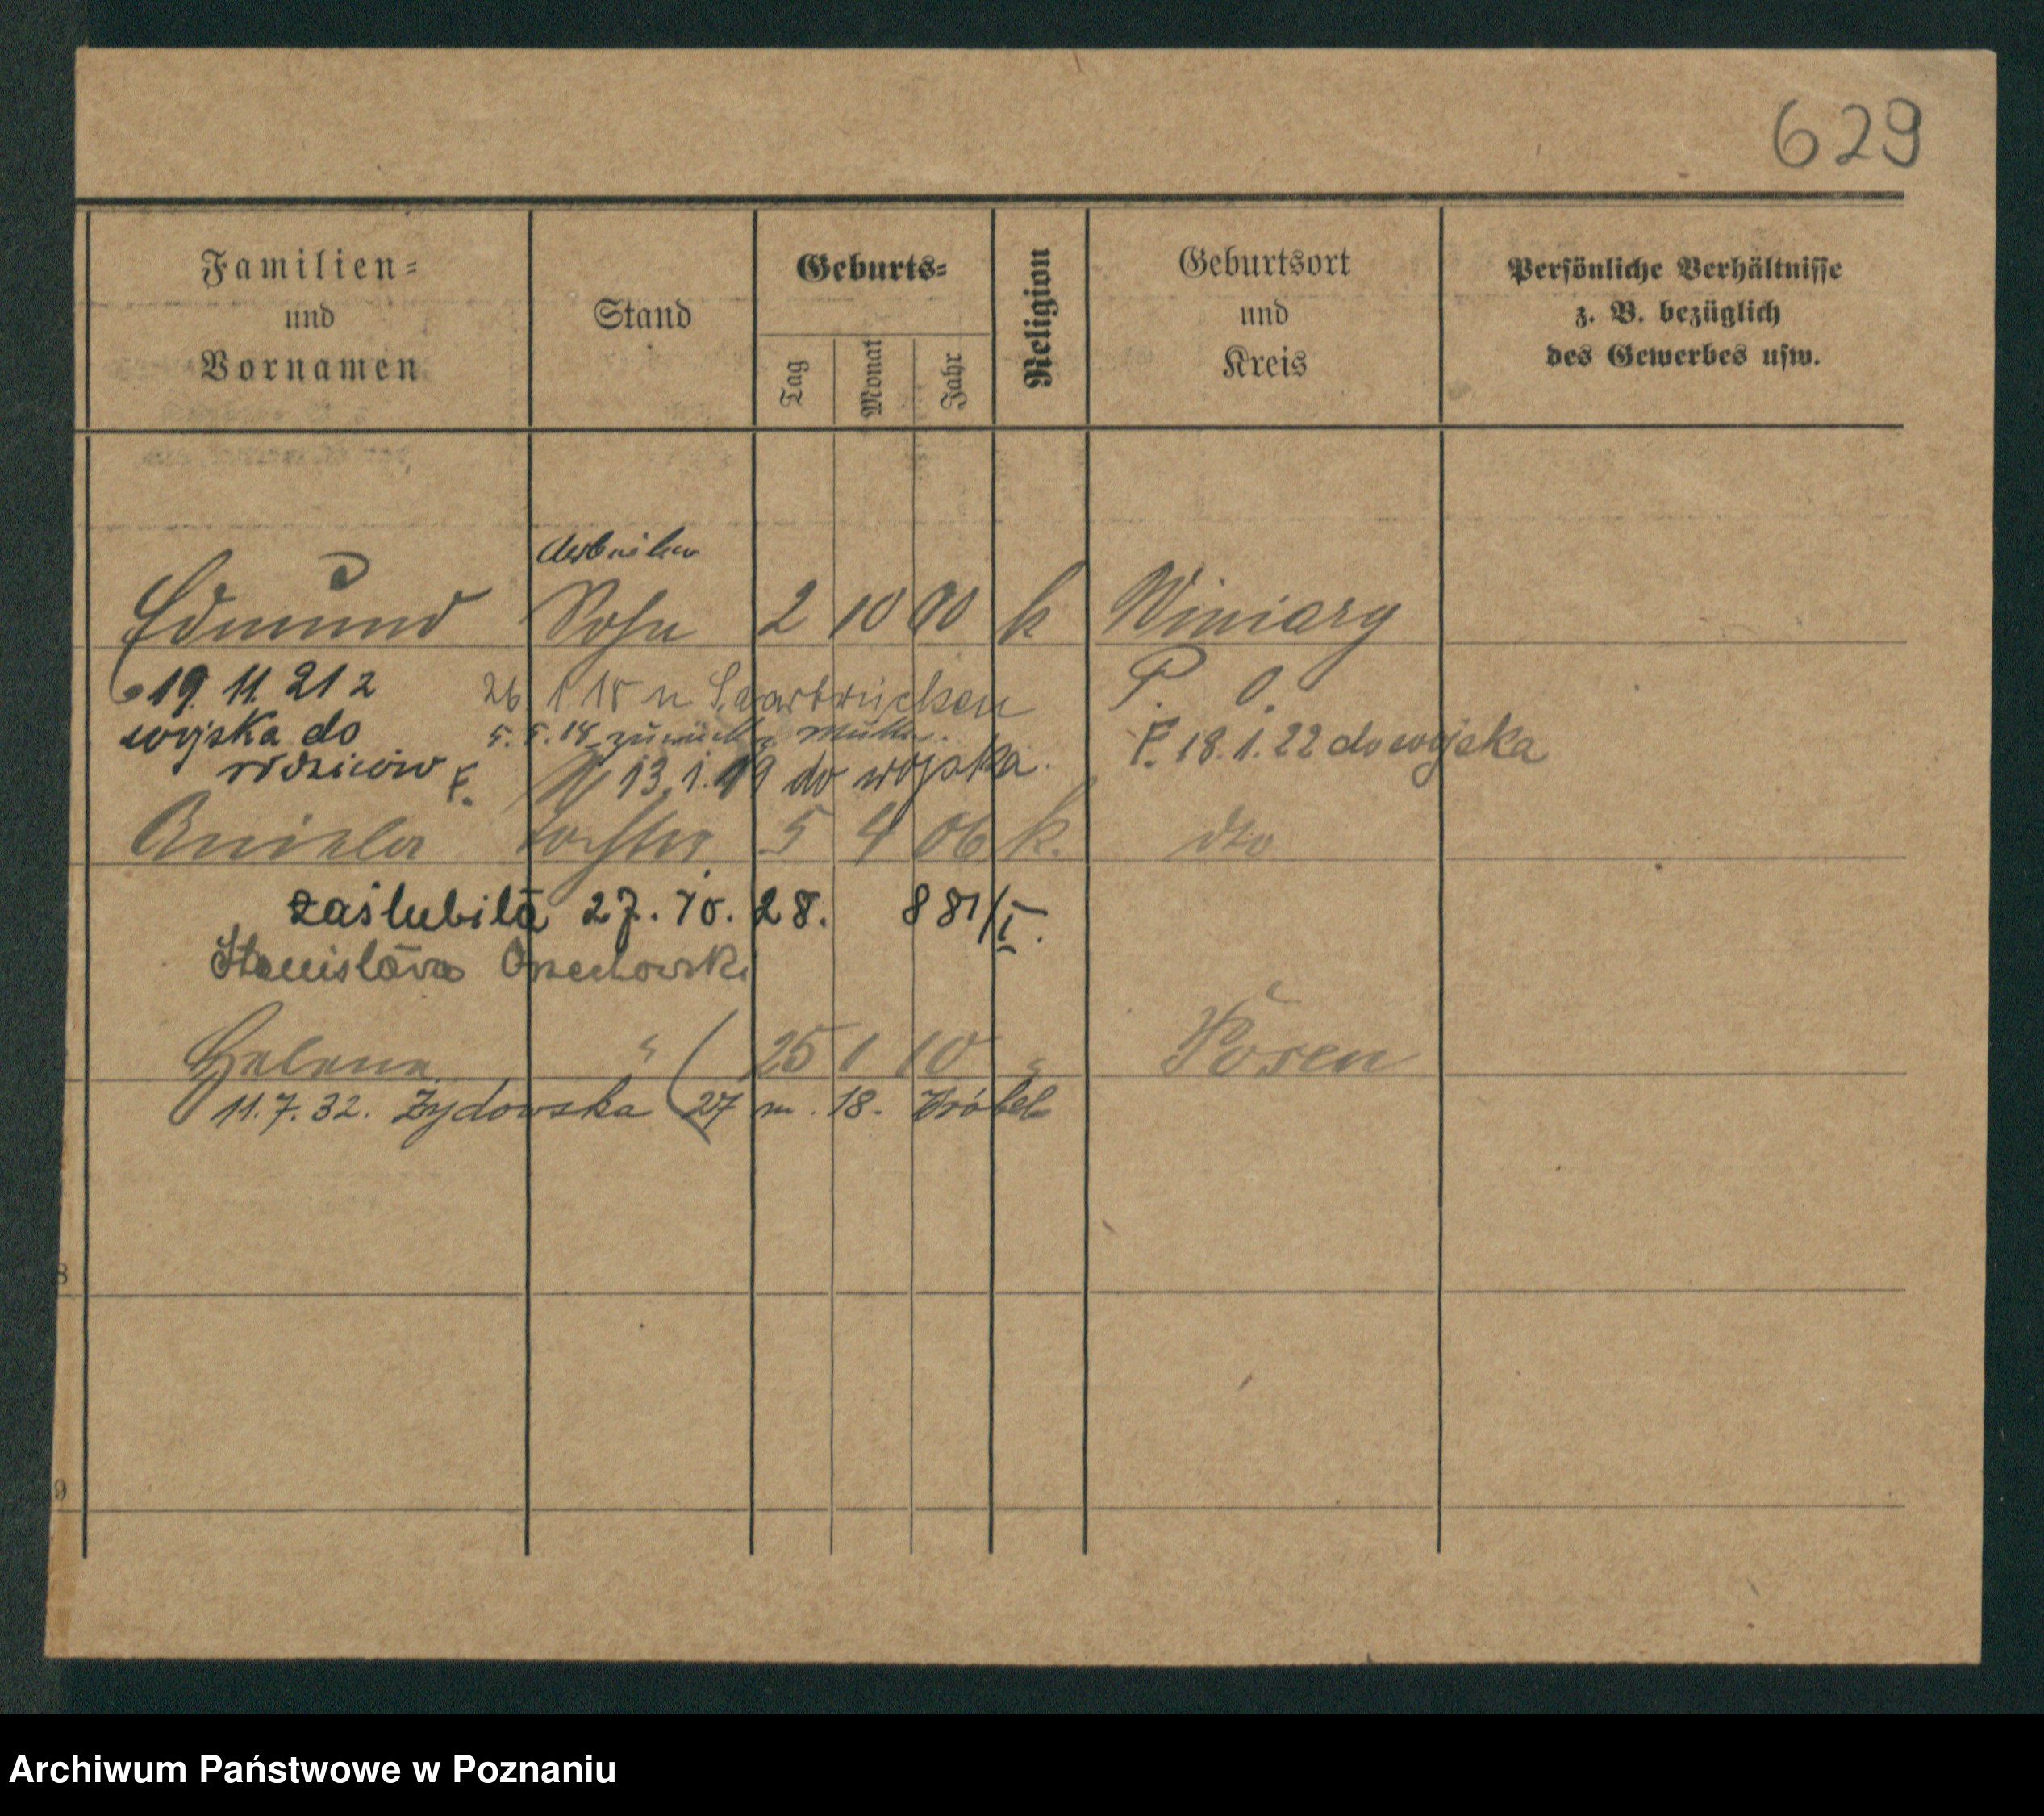 629
Familien=
und
Vornamen
Stand
Geburts=
Tag
Monat
Jahr
Religion
Geburtsort
und
Kreis
Persönliche Verhältnisse
z. B. bezüglich
des Gewerbes usw.
Arbeiter
Edmund Sohn 2 10 00 k Winiary
19. 11. 21 z 26 1 18 n Saarbrücken P. O.
wojska do 5. 5. 18 zurück z. F. 18. 1. 22 do wojska
rodziców F. 13. 1. 19 do wojska.
Aniela Tochter 5 4 06 k. dto
zaślubiła 27. 10. 28. 881/I.
Stanisława Orzechowski
Helena " 25 1 10 " Posen
11. 7. 32. Żydowska 27 m. 18. Wróbel
8
9
Archiwum Państwowe w Poznaniu